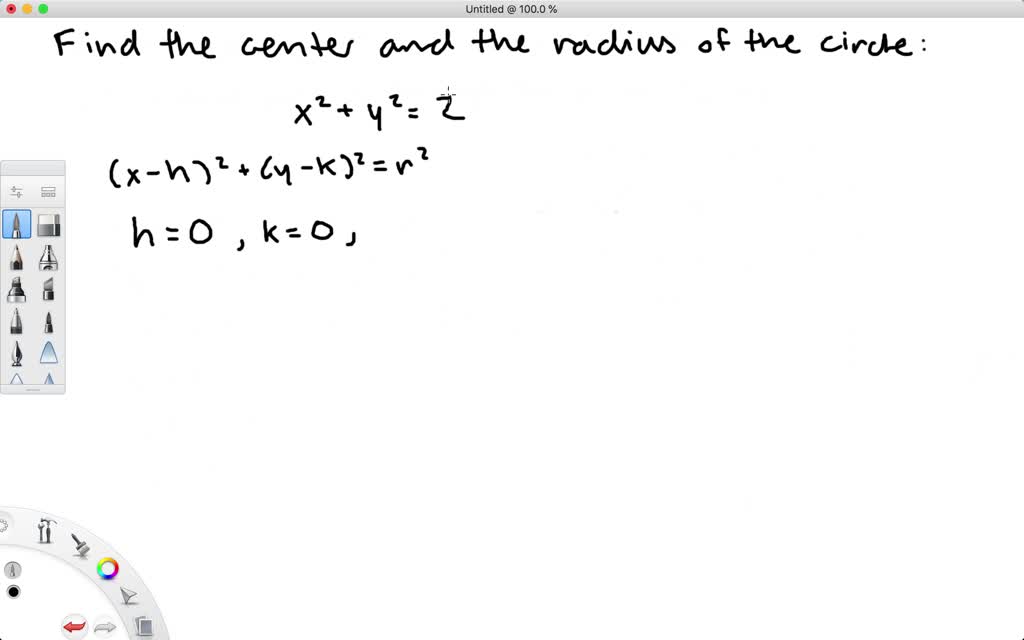 Untitled @ 100.0 %
Find the center and the radius of the circle:
x² + y² = 2
(x-h)² + (y-k)² = r²
h = 0, k = 0,